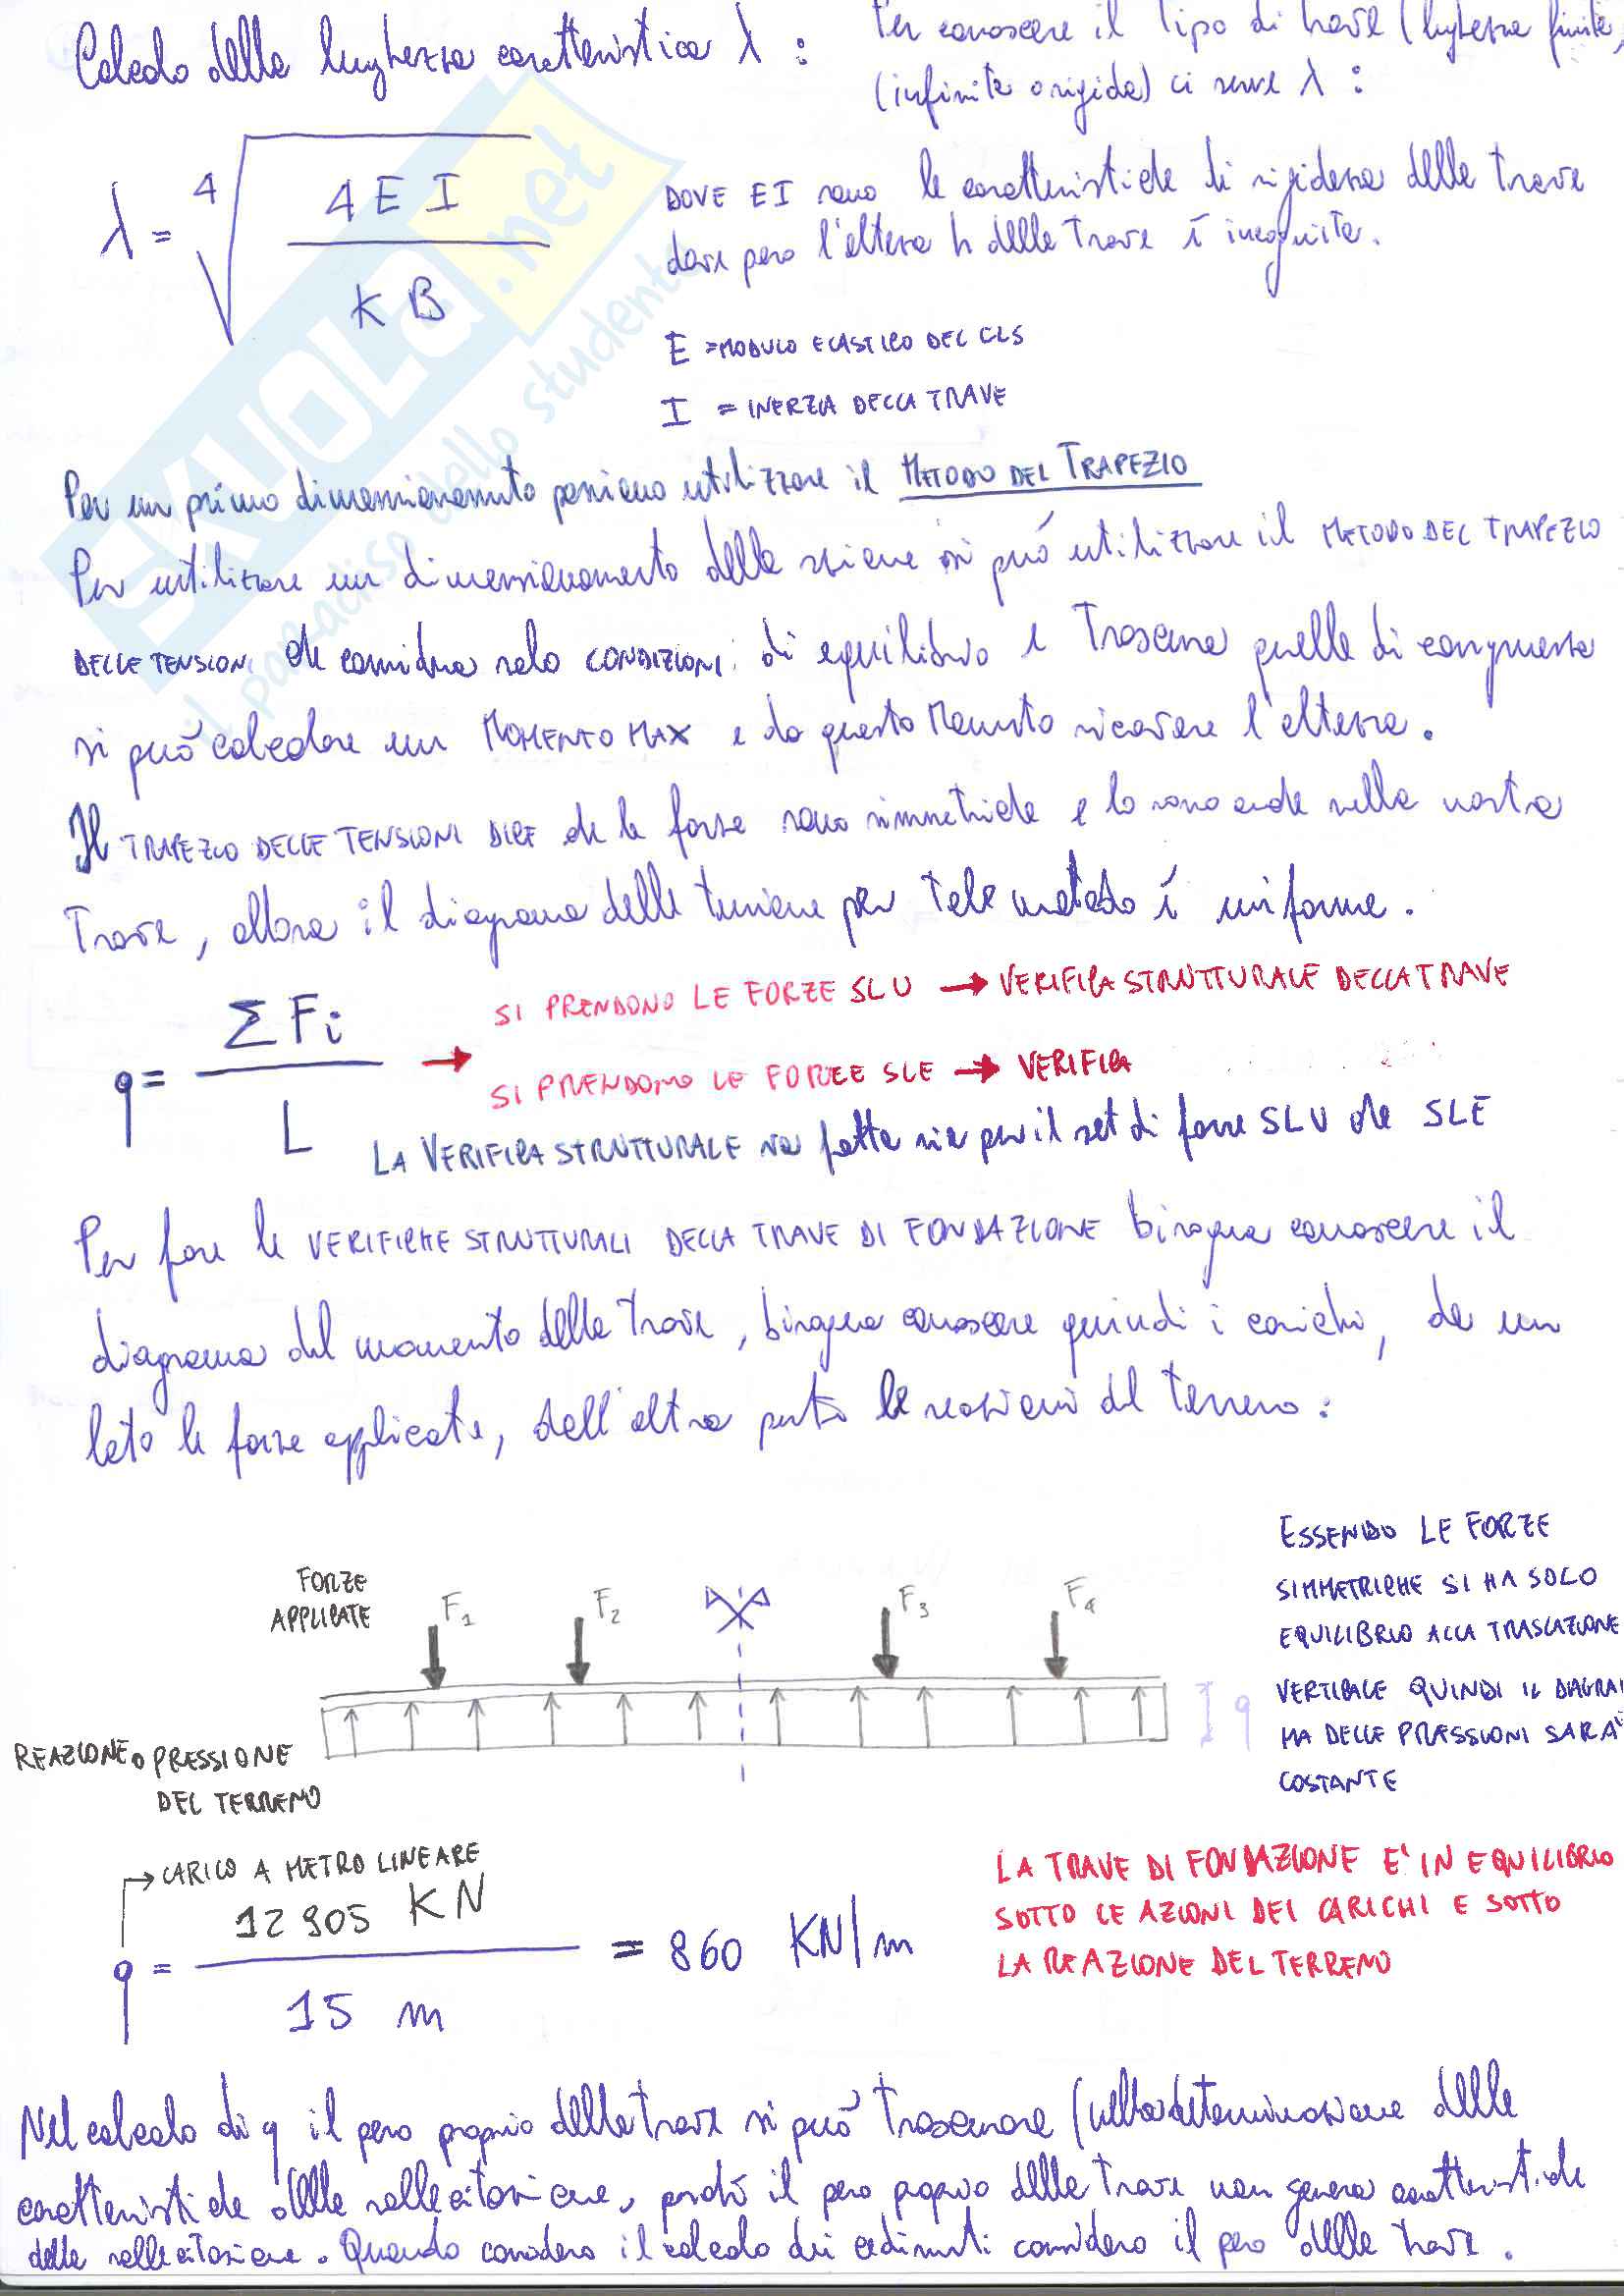 Calcolo della lunghezza caratteristica λ :
Per conoscere il tipo di trave (lughezza finita,
(infinita o rigida) ci serve λ :
λ = ⁴√(4 E I / K B)
DOVE EI sono le caratteristiche di rigidezza della trave
dove pero l'altezza h della Trave è incognita.
E = MODULO ELASTICO DEL CLS
I = INERZIA DELLA TRAVE
Per un primo dimensionamento possiamo utilizzare il METODO DEL TRAPEZIO
Per utilizzare un dimensionamento della sezione si può utilizzare il METODO DEL TRAPEZIO
DELLE TENSIONI che considera solo CONDIZIONI di equilibrio e Trascura quelle di congruenza
si può calcolare un MOMENTO MAX e da questo Momento ricavare l'altezza.
Il TRAPEZIO DELLE TENSIONI DICE che le forze sono simmetriche e lo sono anche nella nostra
Trave, allora il diagramma delle tensione per tale metodo è uniforme.
q = Σ Fi / L
SI PRENDONO LE FORZE SLU → VERIFICA STRUTTURALE DELLA TRAVE
SI PRENDONO LE FORZE SLE → VERIFICA
LA VERIFICA STRUTTURALE va fatta sia per il set di forze SLU che SLE
Per fare le VERIFICHE STRUTTURALI DELLA TRAVE DI FONDAZIONE bisogna conoscere il
diagramma del momento della Trave, bisogna conoscere quindi i carichi, da un
lato le forze applicate, dall'altra parte le reazioni del terreno:
FORZE
APPLICATE
F1
F2
F3
F4
REAZIONE o PRESSIONE
DEL TERRENO
q
ESSENDO LE FORZE
SIMMETRICHE SI HA SOLO
EQUILIBRIO ALLA TRASLAZIONE
VERTICALE QUINDI IL DIAGRAM
MA DELLE PRESSIONI SARA'
COSTANTE
CARICO A METRO LINEARE
q = 12905 KN / 15 m = 860 KN/m
LA TRAVE DI FONDAZIONE E' IN EQUILIBRIO
SOTTO LE AZIONI DEI CARICHI E SOTTO
LA REAZIONE DEL TERRENO
Nel calcolo di q il peso proprio della trave si può Trascurare (nella determinazione delle
caratteristiche della sollecitazione, perché il peso proprio della trave non genera caratteristiche
della sollecitazione. Quando considero il calcolo dei cedimenti considero il peso della trave.
SKUOLa.net
il paradiso dello studente